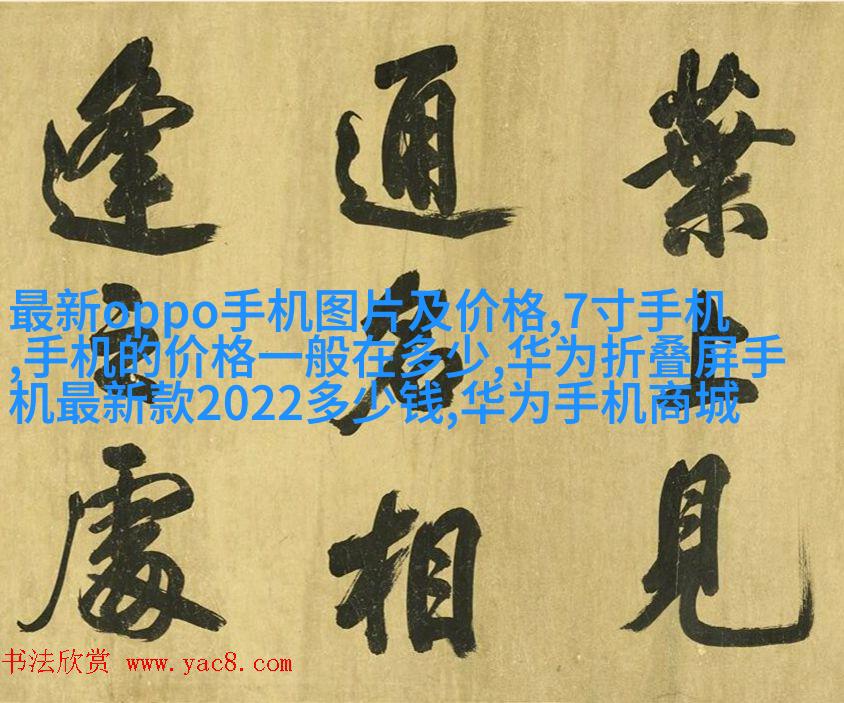 葉上見
通名相
逢處
最新oppo手机图片及价格,7寸手机
,手机的价格一般在多少,华为折叠屏手
机最新款2022多少钱,华为手机商城
书法欣赏 www.yac8.com